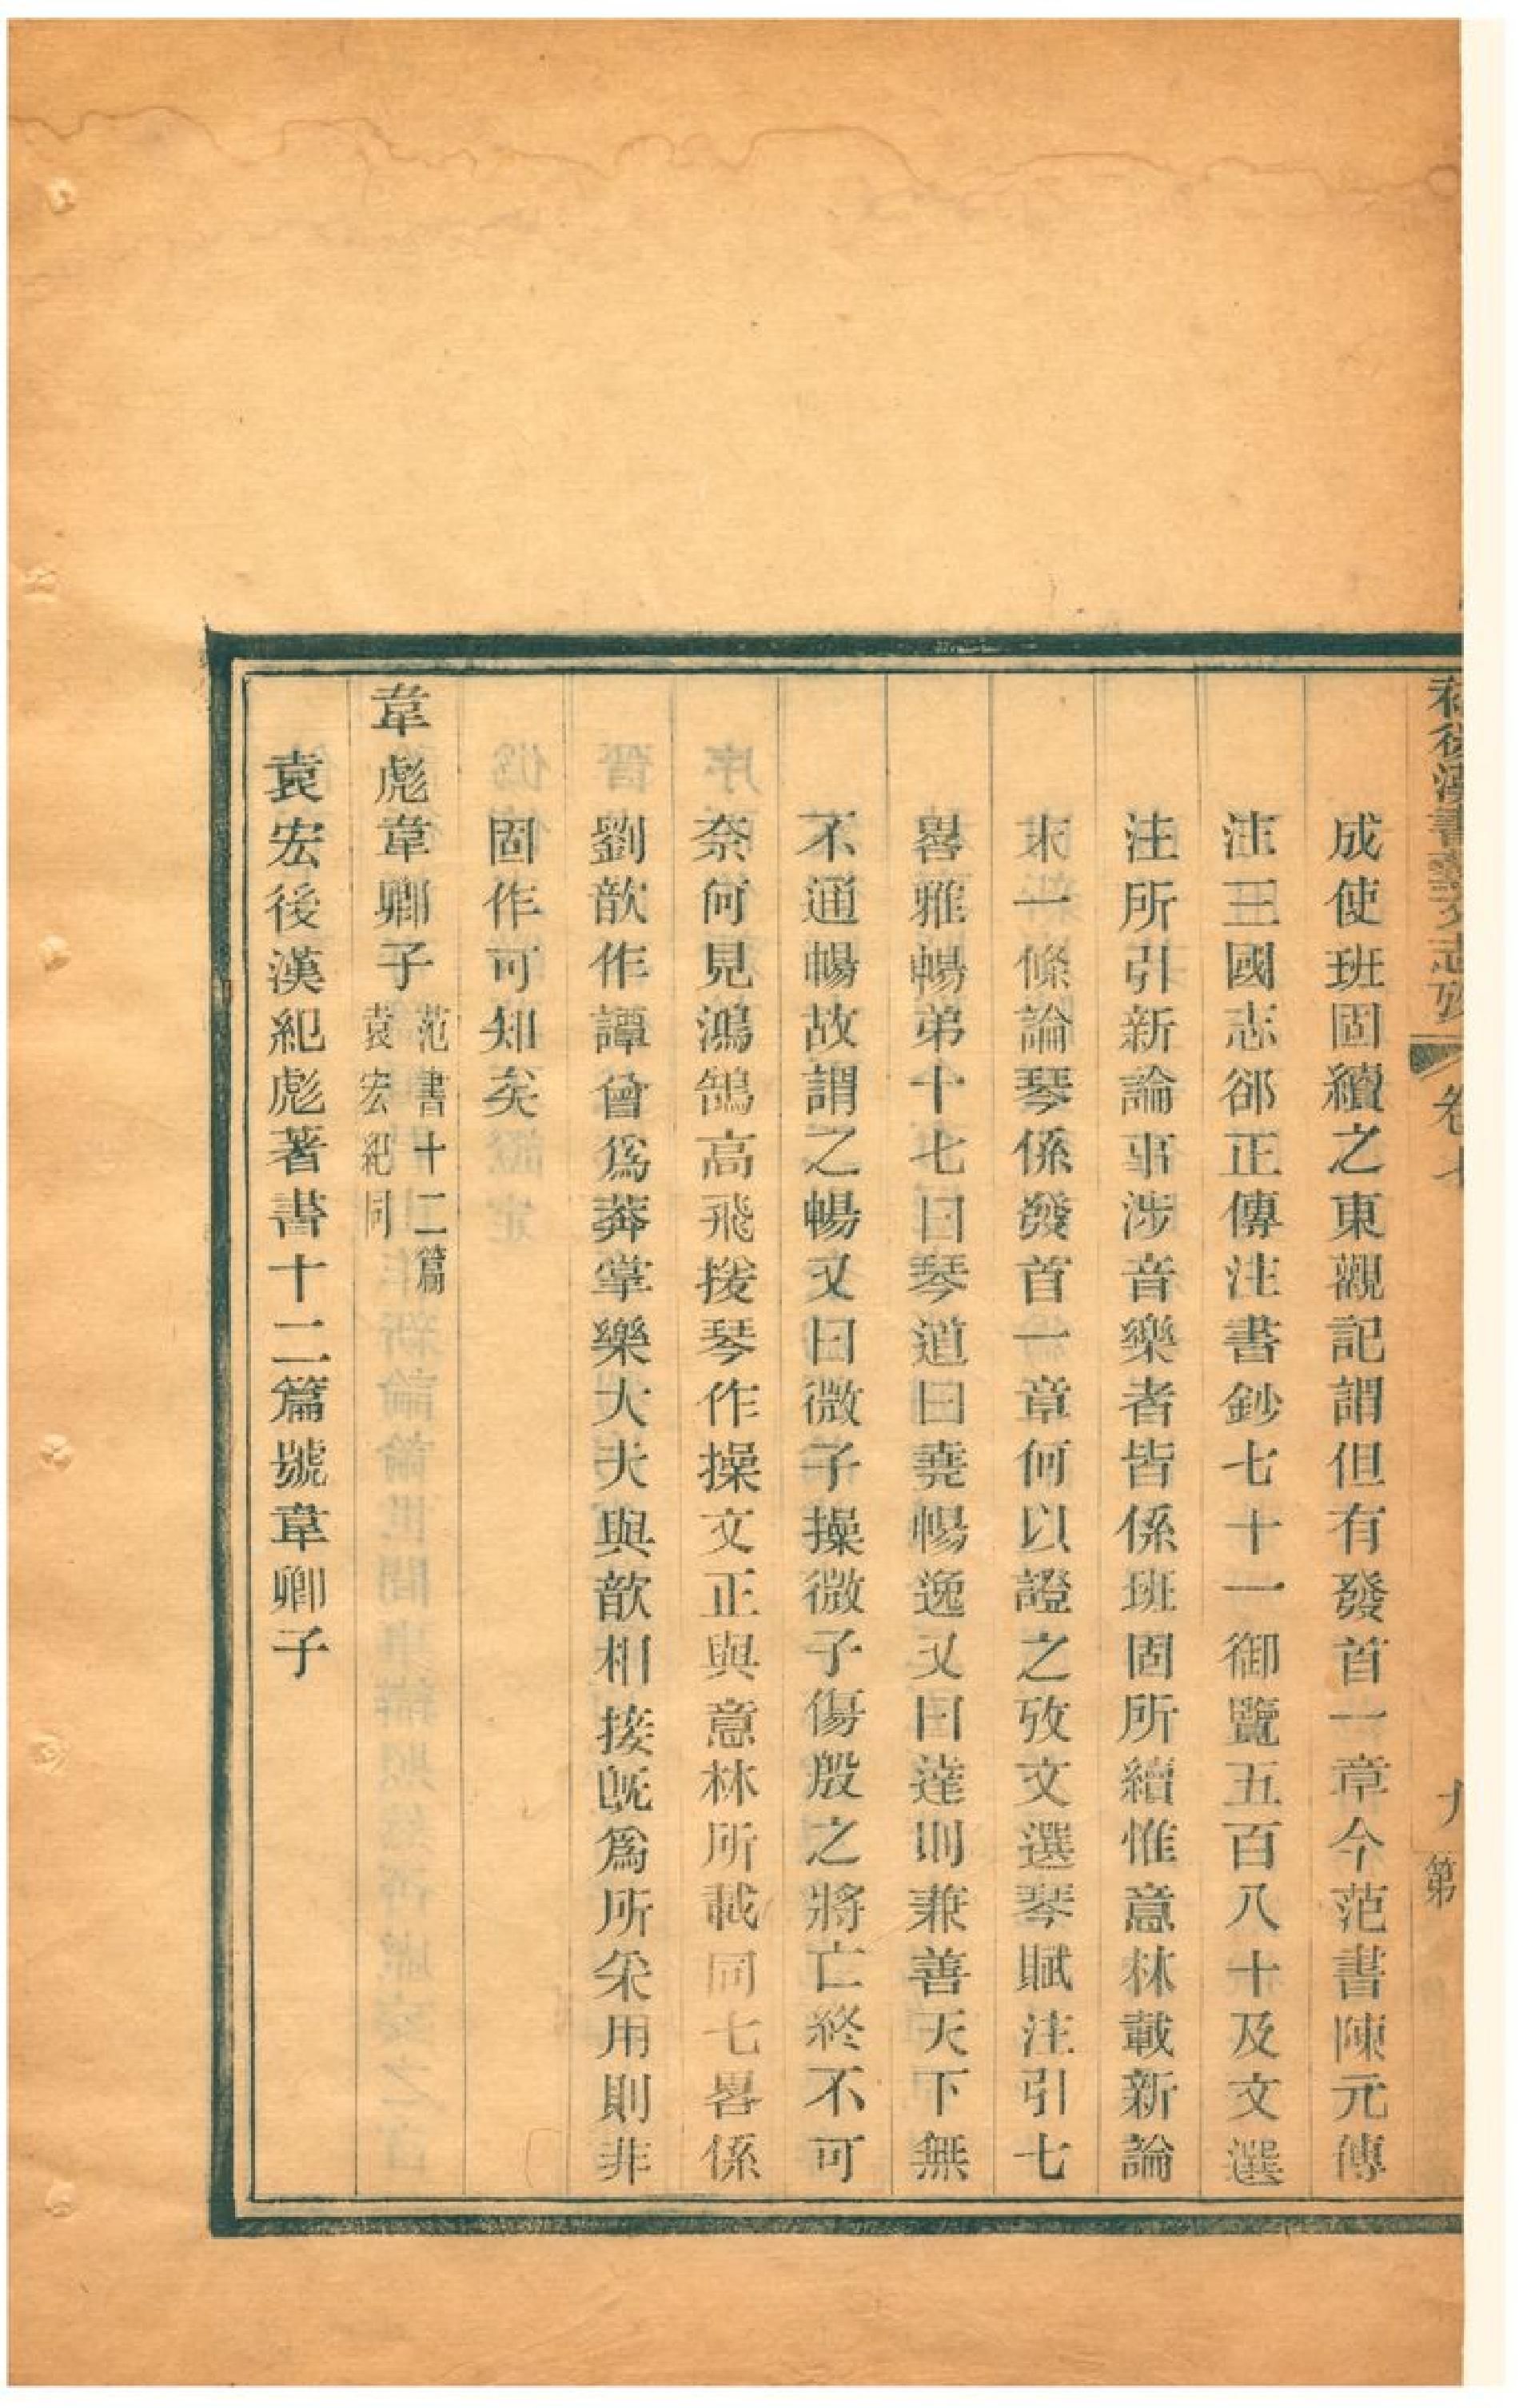 補後漢書藝文志攷 卷七 九 第
成使班固續之東觀記謂但有發首一章今范書陳元傳
注三國志郤正傳注書鈔七十一御覽五百八十及文選
注所引新論事涉音樂者皆係班固所續惟意林載新論
末一條論琴係發首一章何以證之攷文選琴賦注引七
畧雅暢弟十七曰琴道曰堯暢逸又曰達則兼善天下無
不通暢故謂之暢又曰微子操微子傷殷之將亡終不可
奈何見鴻鵠高飛援琴作操文正與意林所載同七畧係
劉歆作譚曾爲莽掌樂大夫與歆相接旣爲所采用則非
固作可知矣
韋彪韋卿子范書十二篇
袁宏紀同
袁宏後漢紀彪著書十二篇號韋卿子